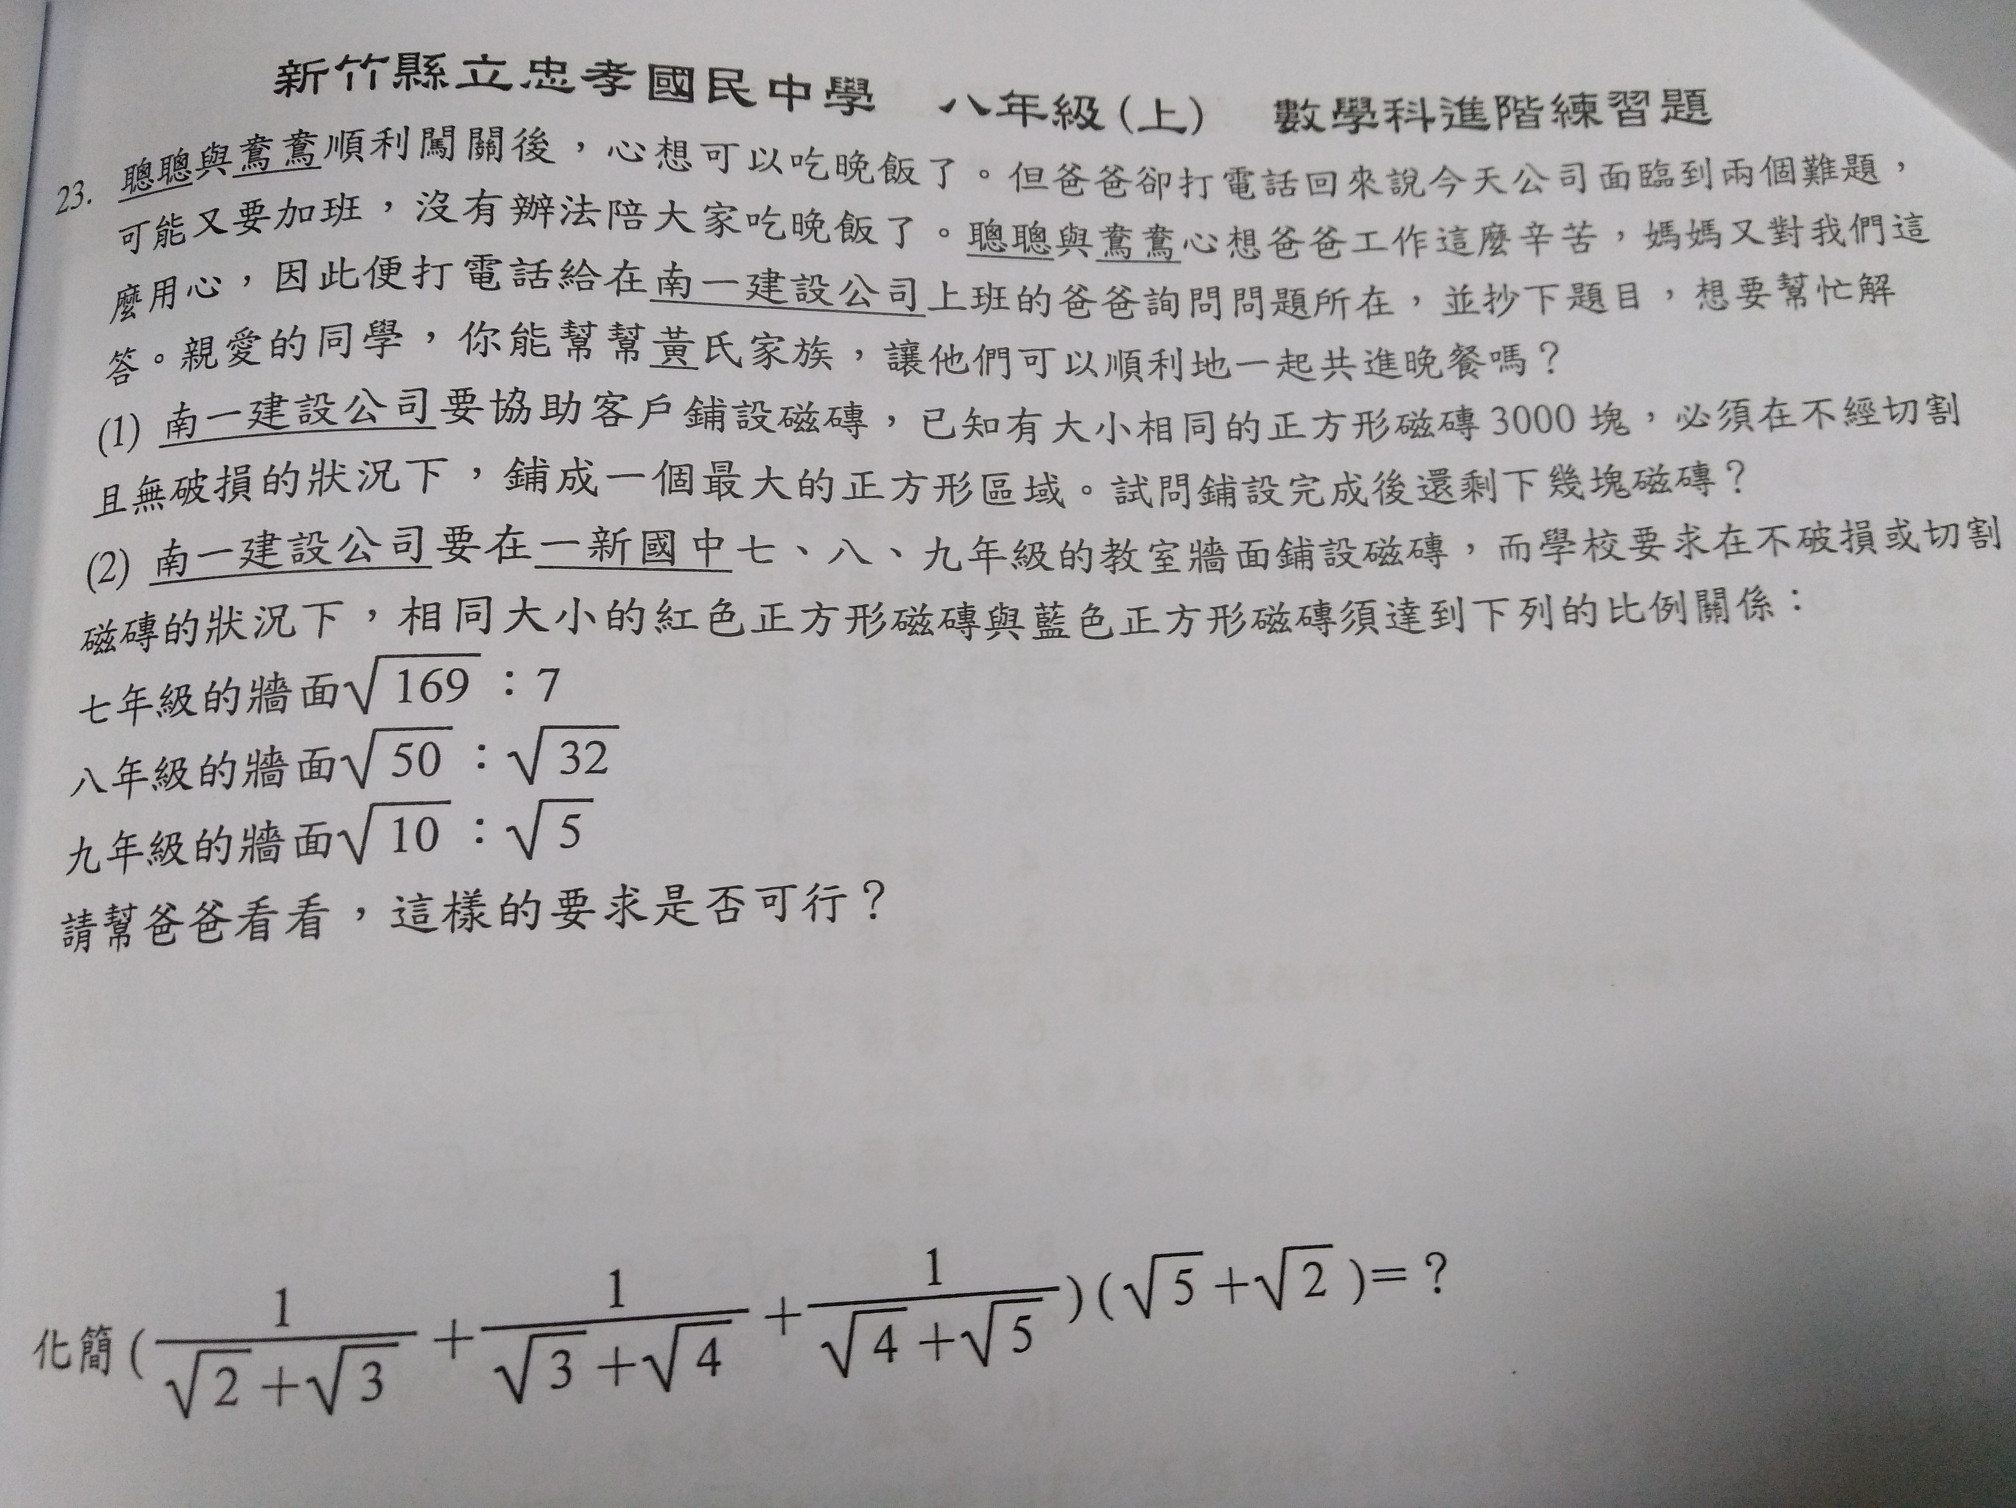 新竹縣立忠孝國民中學 八年級(上) 數學科進階練習題
23. 聰聰與鴦鴦順利闖關後，心想可以吃晚飯了。但爸爸卻打電話回來說今天公司面臨到兩個難題，
可能又要加班，沒有辦法陪大家吃晚飯了。聰聰與鴦鴦心想爸爸工作這麼辛苦，媽媽又對我們這
麼用心，因此便打電話給在南一建設公司上班的爸爸詢問問題所在，並抄下題目，想要幫忙解
答。親愛的同學，你能幫幫黃氏家族，讓他們可以順利地一起共進晚餐嗎？
(1) 南一建設公司要協助客戶鋪設磁磚，已知有大小相同的正方形磁磚 3000 塊，必須在不經切割
且無破損的狀況下，鋪成一個最大的正方形區域。試問鋪設完成後還剩下幾塊磁磚？
(2) 南一建設公司要在一新國中七、八、九年級的教室牆面鋪設磁磚，而學校要求在不破損或切割
磁磚的狀況下，相同大小的紅色正方形磁磚與藍色正方形磁磚須達到下列的比例關係：
七年級的牆面√169：7
八年級的牆面√50：√32
九年級的牆面√10：√5
請幫爸爸看看，這樣的要求是否可行？
化簡(1/(√2+√3)+1/(√3+√4)+1/(√4+√5))(√5+√2)=？